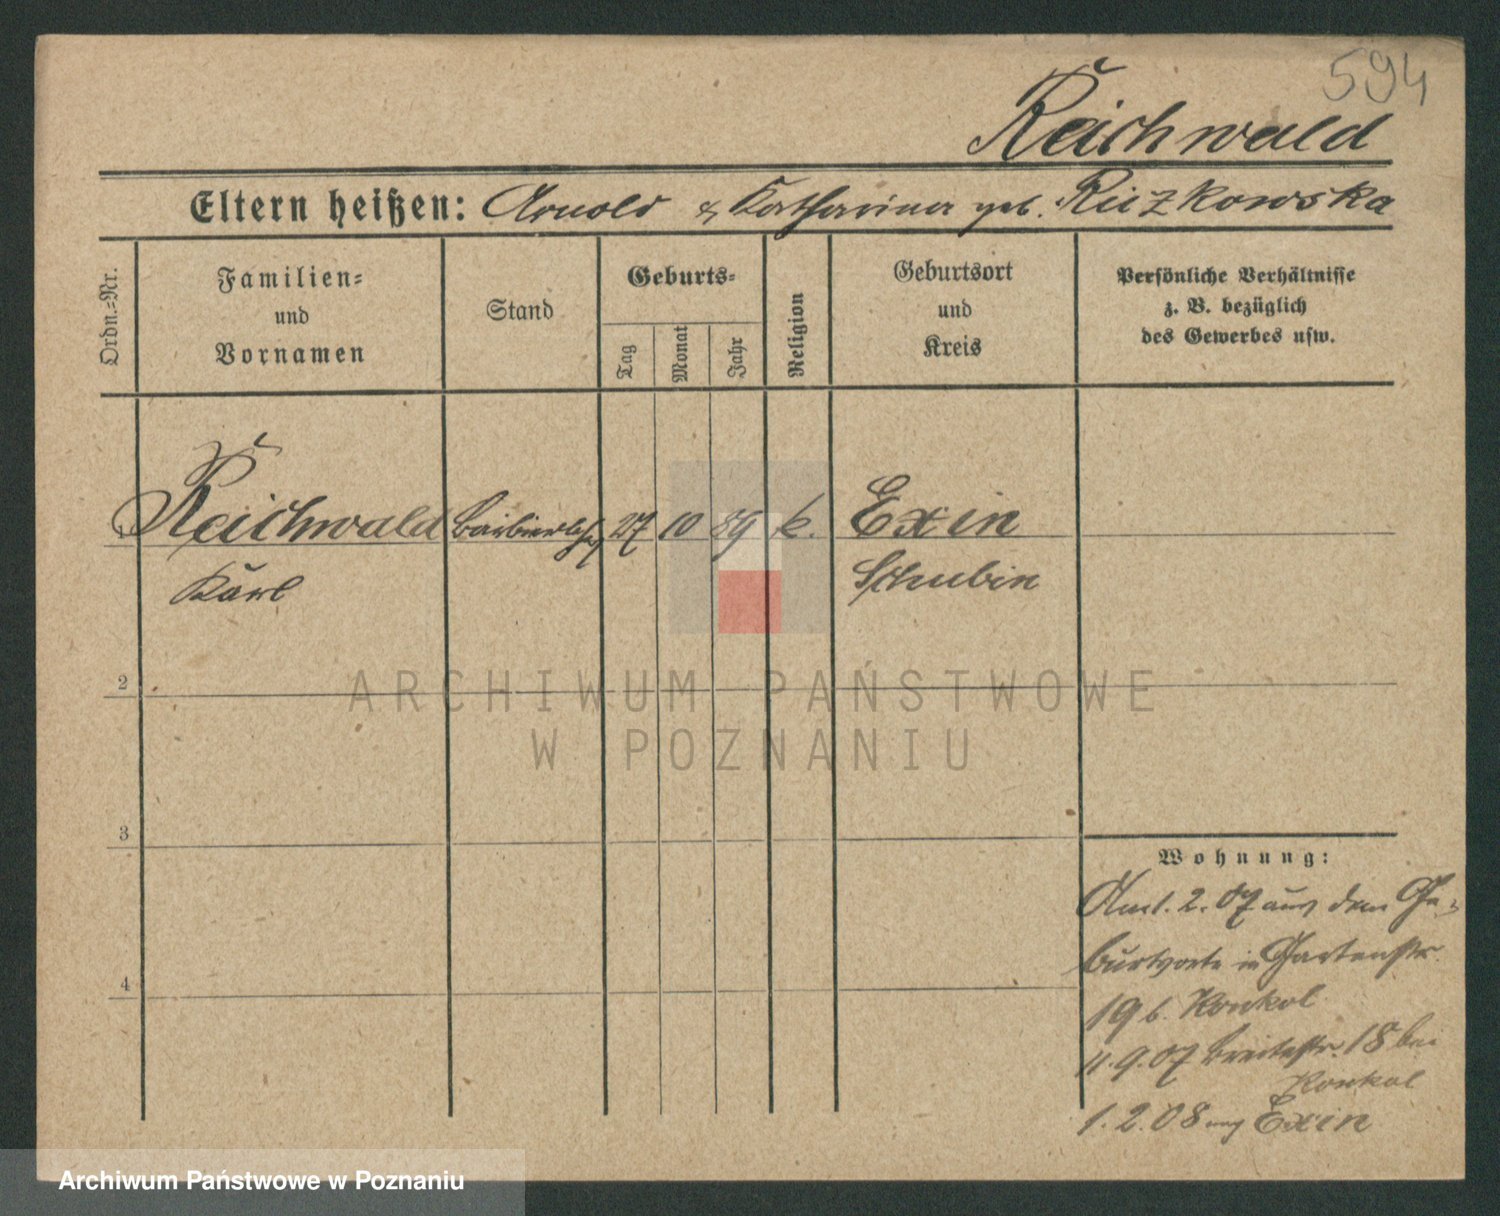 594
Reichwald
Eltern heißen: Arnold & Katharina geb. Ruzkowska
Ordn.-Nr.
Familien-
und
Vornamen
Stand
Geburts-
Tag
Monat
Jahr
Religion
Geburtsort
und
Kreis
Persönliche Verhältnisse
z. B. bezüglich
des Gewerbes usw.
Reichwald Barbierlehrl 27 10 89 k. Exin
Karl Schubin
2
3
4
Wohnung:
Am 1. 2. 07 aus dem Ge-
burtsorte in Gartenstr.
19 b. Konkol
11. 9. 07 Breitestr. 18 bei
Konkol
1. 2. 08 Exin
ARCHIWUM PAŃSTWOWE
W POZNANIU
Archiwum Państwowe w Poznaniu